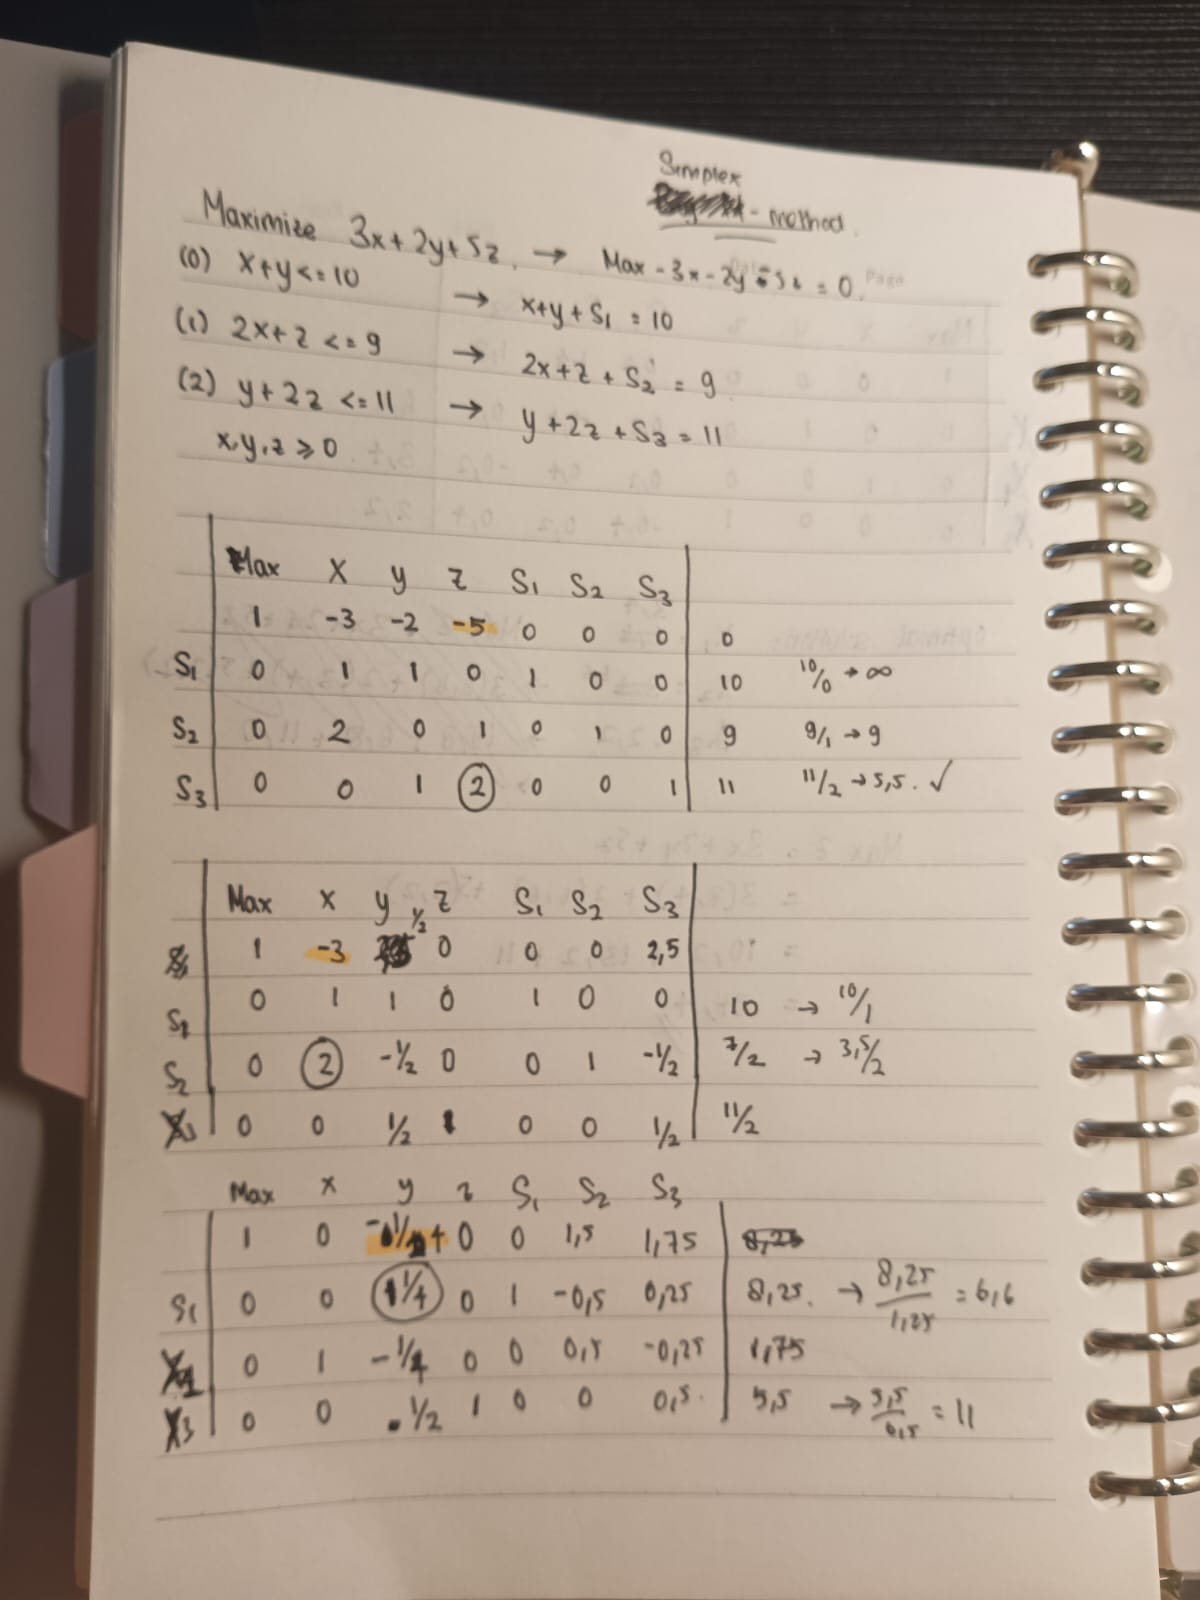 Simplex
- method.
Maximize 3x + 2y + 5z. → Max - 3x - 2y - 5z = 0.
(0) x+y <= 10 → x+y+S₁ = 10
(1) 2x+z <= 9 → 2x+z+S₂ = 9
(2) y+2z <= 11 → y+2z+S₃ = 11
x,y,z ≥ 0.
Max x y z S₁ S₂ S₃
1 -3 -2 -5 0 0 0 0
S₁ 0 1 1 0 1 0 0 10 10/0 → ∞
S₂ 0 2 0 1 0 1 0 9 9/1 → 9
S₃ 0 0 1 2 0 0 1 11 11/2 → 5,5. ✓
Max x y z S₁ S₂ S₃
1 -3 1/2 0 0 0 2,5
S₁ 0 1 1 0 1 0 0 10 → 10/1
S₂ 0 2 -1/2 0 0 1 -1/2 7/2 → 3,5/2
0 0 1/2 1 0 0 1/2 11/2
Max x y z S₁ S₂ S₃
1 0 0 0 1,5 1,75
S₁ 0 0 1 1/4 0 1 -0,5 0,25 8,25. → 8,25/1,25 = 6,6
0 1 -1/4 0 0 0,5 -0,25 1,75
X₃ 0 0 1/2 1 0 0 0,5. 5,5 → 5,5/0,5 = 11